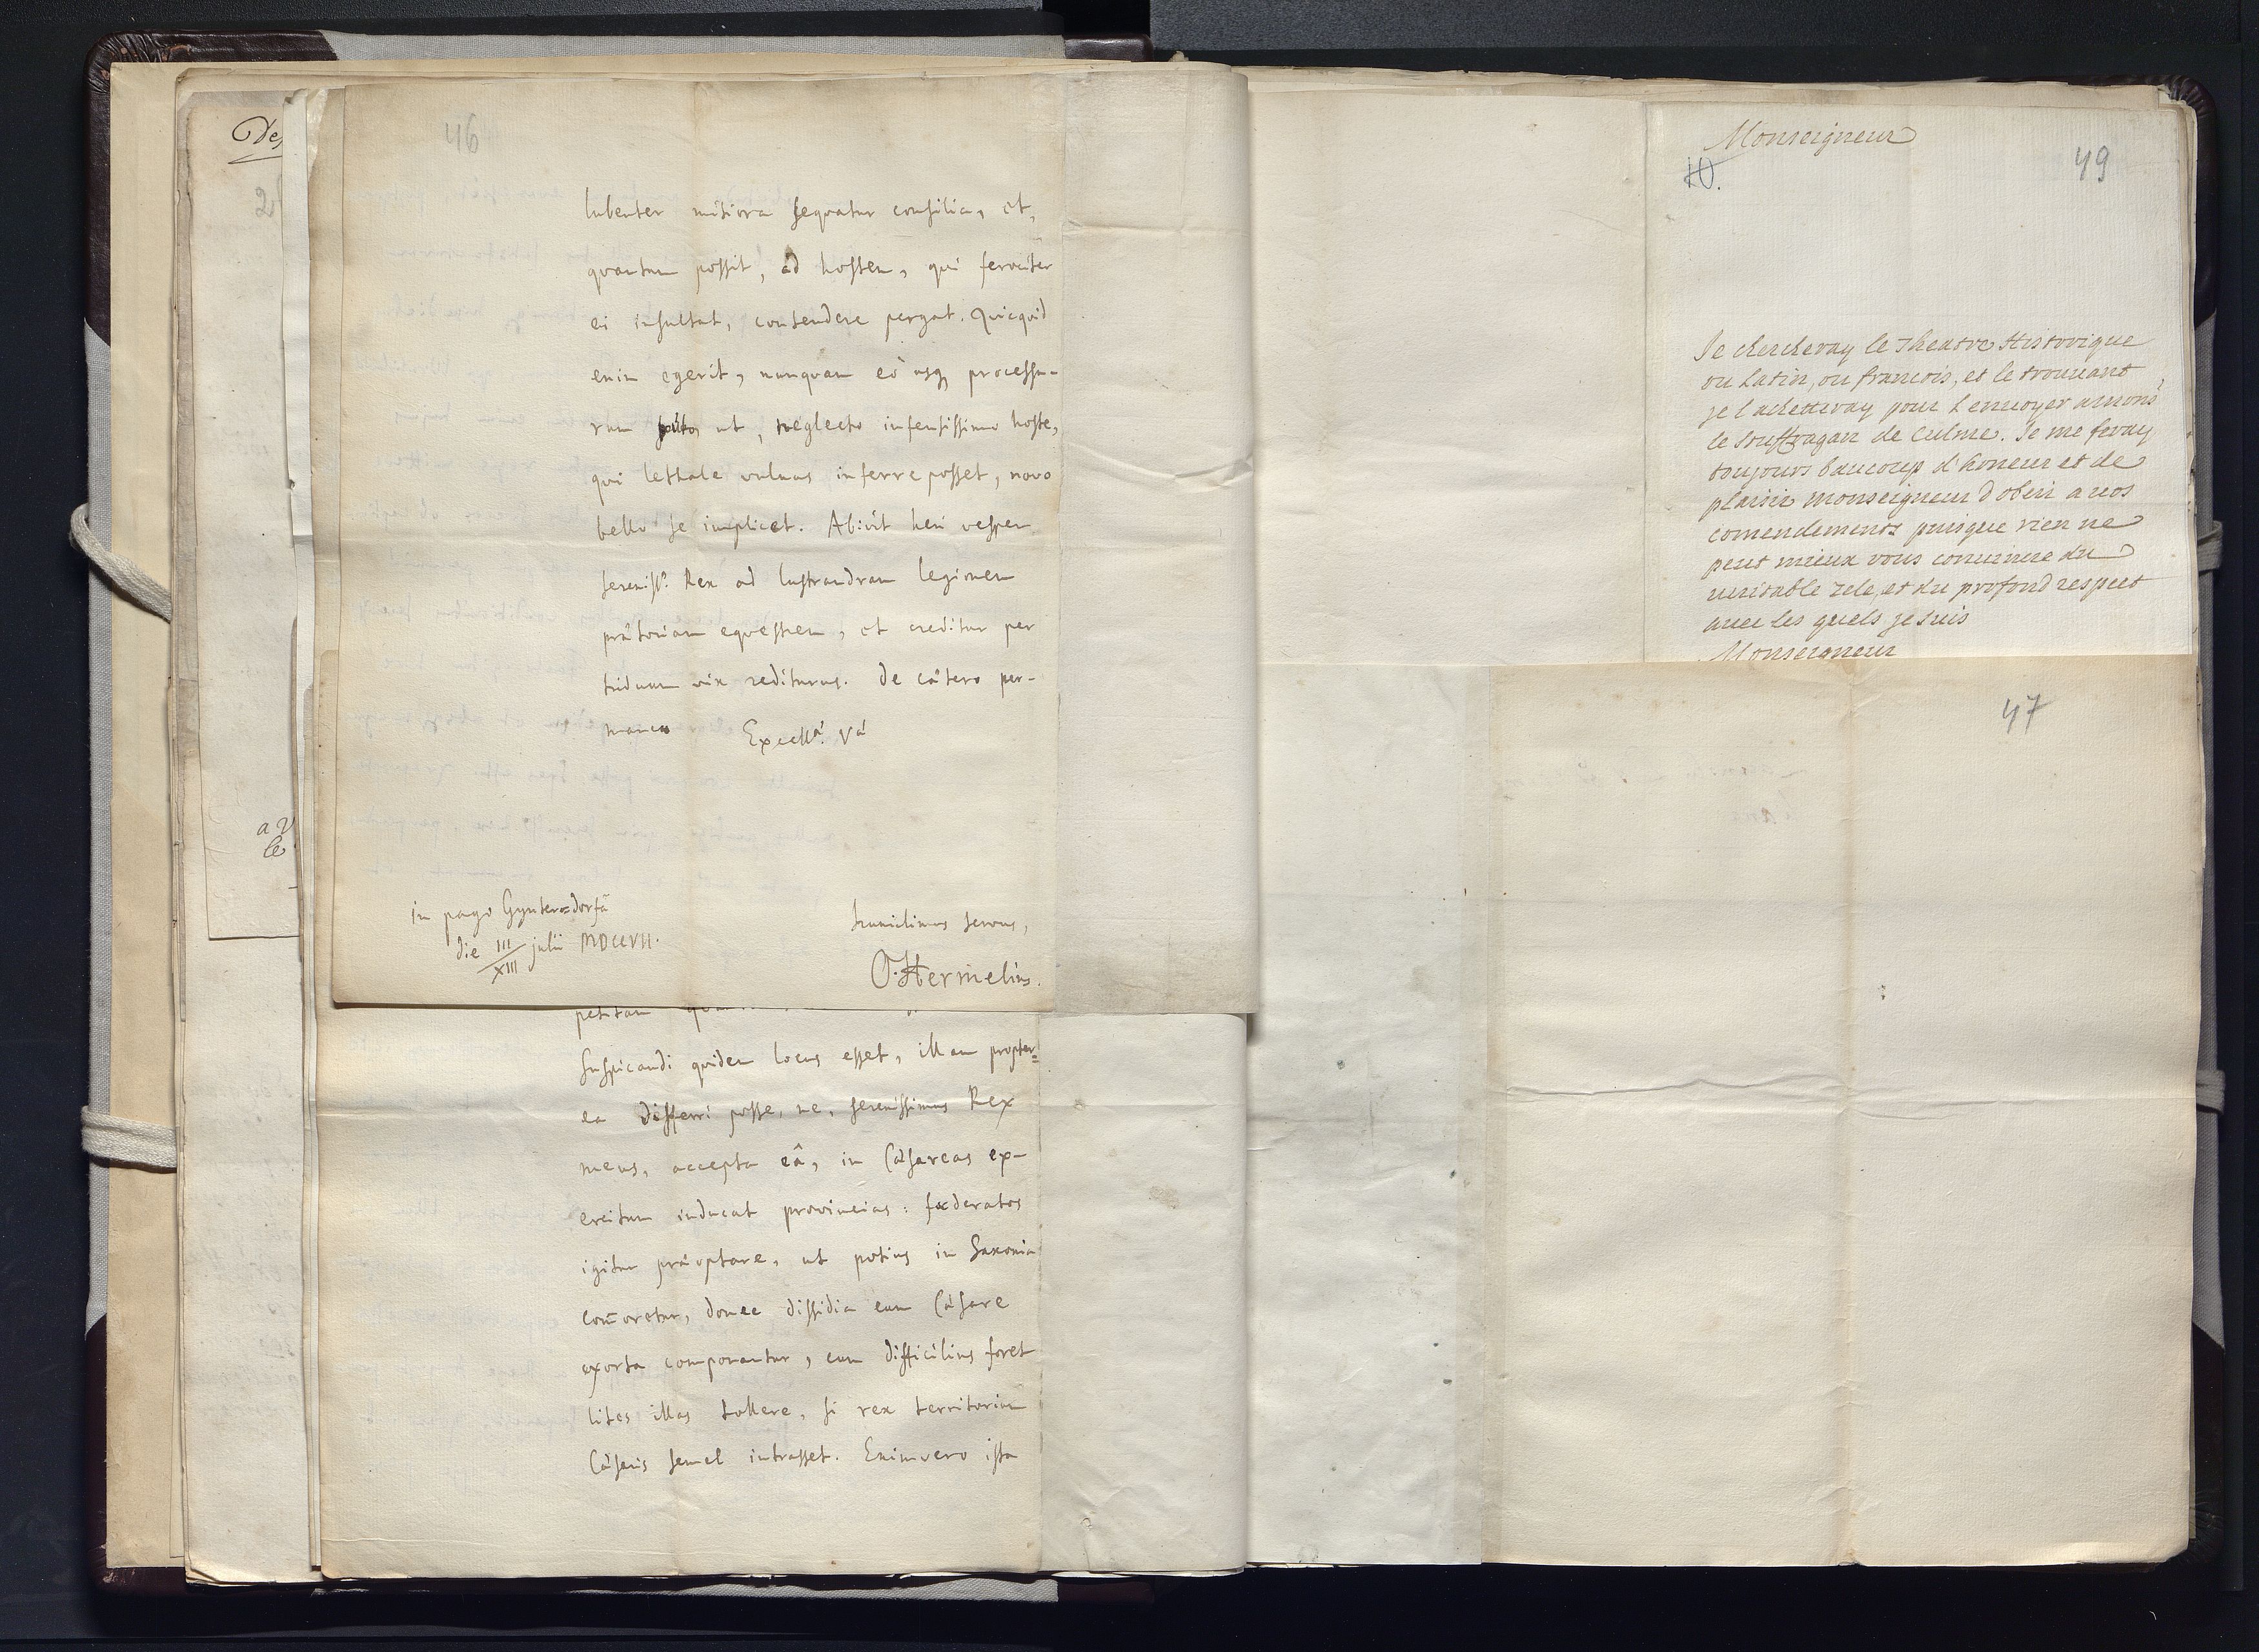 46
lubenter mitiora sequatur consilia, et,
quantum possit, ad hostem, qui ferociter
ei insultat, contendere pergat. Quicquid
enim egerit, nunquam eò usq; processu-
rum puto, ut, neglecto infensissimo hoste,
qui lethale vulnus inferre posset, novo
bello se implicet. Abiit heri vesperi
sereniss.⁹ Rex ad lustrandam legionem
prætoriam equestrem, et creditur per
triduum vix rediturus. De cætero per-
maneo Excell.æ Væ
in pago Gynters-dorfā
die III/XIII julii MDCCVII.
humilimus servus,
O. Hermelius.
petitam
suspicandi quidem locus esset, illam propter=
ea differri posse, ne, serenissimus Rex
meus, acceptâ eâ, in Cæsareas ex-
ercitum inducat provincias: fœderatos
igitur præoptare, ut potius in Saxonia
com̄oretur, donec dissidia cum Cæsare
exorta componantur, cum difficilius foret
lites illas tollere, si rex territorium
Cæsaris semel intrasset. Enimvero ista
Des
2
a v
le
Monseigneur
10.
49
Je chercheray le Theatre Historique
ou Latin, ou francois, et le trouuant
je l achetteray pour l enuoyer amons
le Souffragan de Culme. Je me feray
toujours baucoup d'honeur et de
plaisir monseigneur d obeir a uos
comendements puisque rien ne
peut mieux vous conuincre du
ueritable zele, et du profond respect
auec les quels je suis
Monseigneur
47